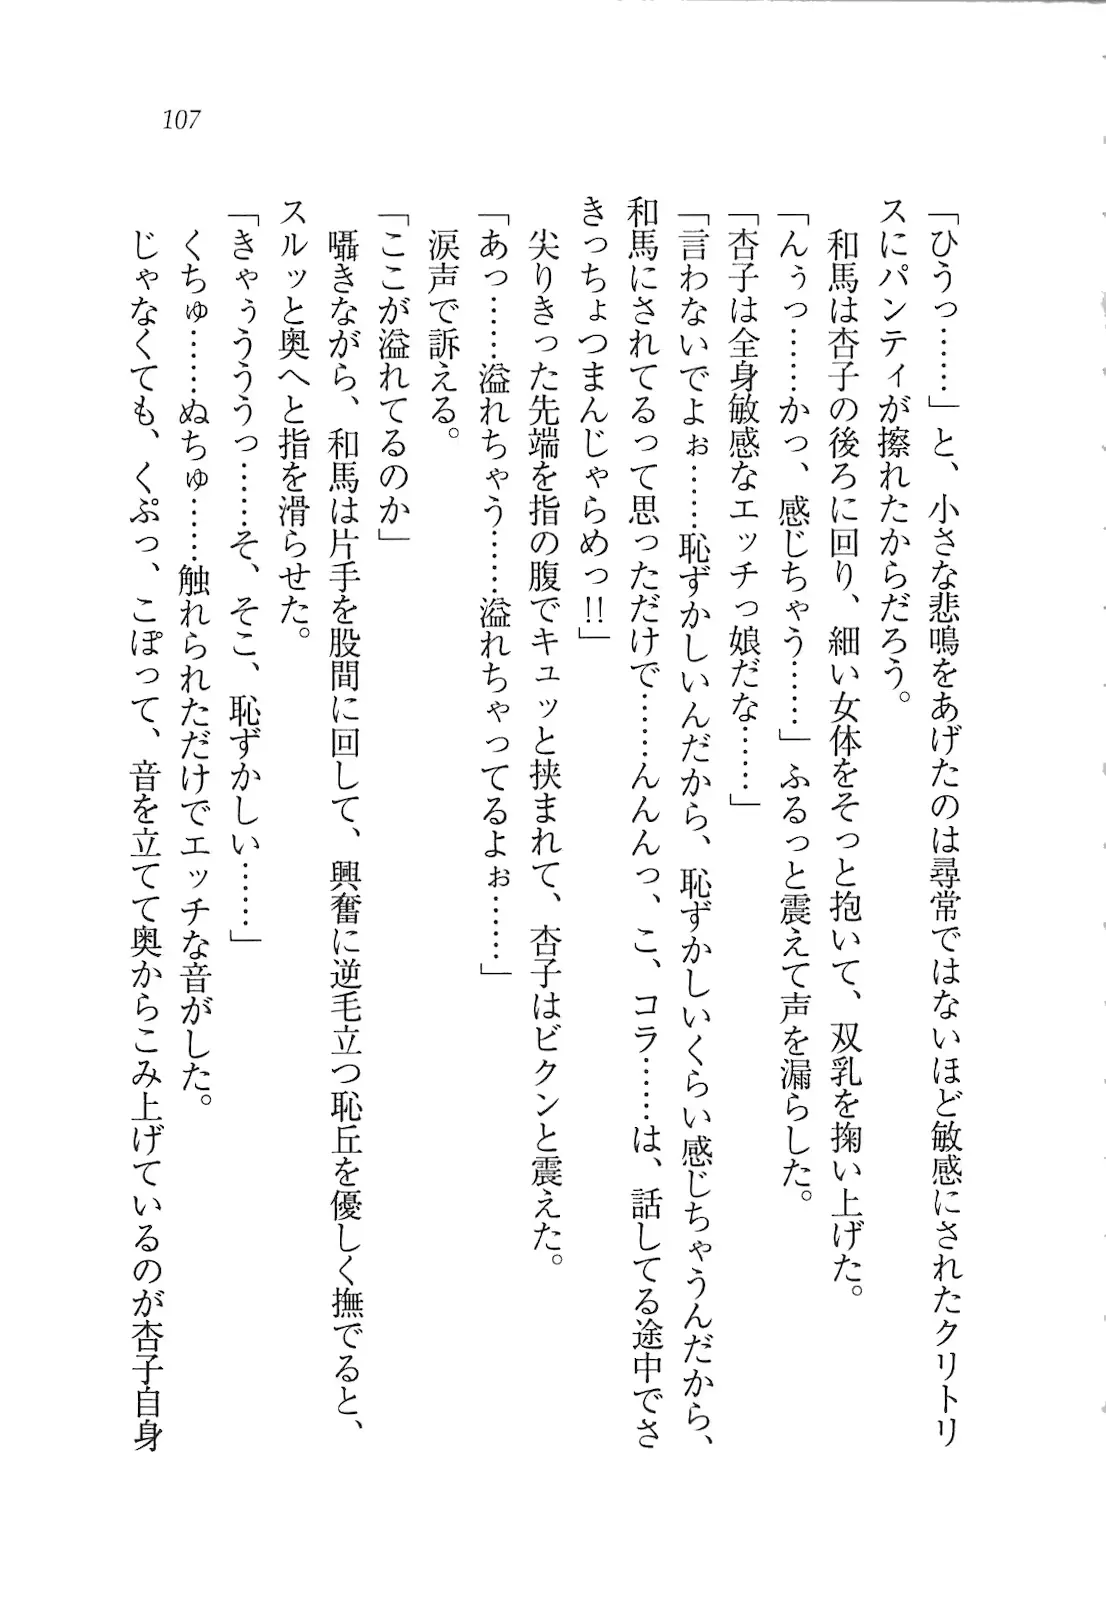 107
「ひうっ……」と、小さな悲鳴をあげたのは尋常ではないほど敏感にされたクリトリ
スにパンティが擦れたからだろう。
和馬は杏子の後ろに回り、細い女体をそっと抱いて、双乳を掬い上げた。
「んぅっ……かっ、感じちゃう……」ふるっと震えて声を漏らした。
「杏子は全身敏感なエッチっ娘だな……」
「言わないでよぉ……恥ずかしいんだから、恥ずかしいくらい感じちゃうんだから、
和馬にされてるって思っただけで……んんんっ、こ、コラ……は、話してる途中でさ
きっちょつまんじゃらめっ!!」
尖りきった先端を指の腹でキュッと挟まれて、杏子はビクンと震えた。
「あっ……溢れちゃう……溢れちゃってるよぉ……」
涙声で訴える。
「ここが溢れてるのか」
囁きながら、和馬は片手を股間に回して、興奮に逆毛立つ恥丘を優しく撫でると、
スルッと奥へと指を滑らせた。
「きゃぅううっ……そ、そこ、恥ずかしい……」
くちゅ……ぬちゅ……触れられただけでエッチな音がした。
じゃなくても、くぷっ、こぽって、音を立てて奥からこみ上げているのが杏子自身